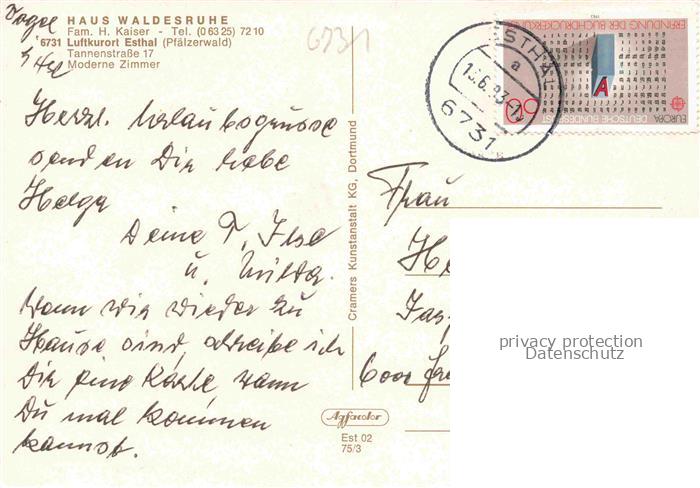 HAUS WALDESRUHE
Fam. H. Kaiser - Tel. (0 63 25) 72 10
6731 Luftkurort Esthal (Pfälzerwald)
Tannenstraße 17
Moderne Zimmer
6731
Herzl. Urlaubsgrüsse
senden Dir liebe
Helga
Deine T. Ilse
u.
Wenn wir wieder zu
Hause sind, schreibe ich
Dir eine Karte, wann
Du mal kommen
kannst.
Cramers Kunstanstalt KG, Dortmund
Agfacolor
Est 02
75/3
ESTHAL
a
6731
60
A
ERFINDUNG DER BUCHDRUCKERKUNST
1983
EUROPA DEUTSCHE BUNDESPOST
Frau
He
6000
privacy protection
Datenschutz